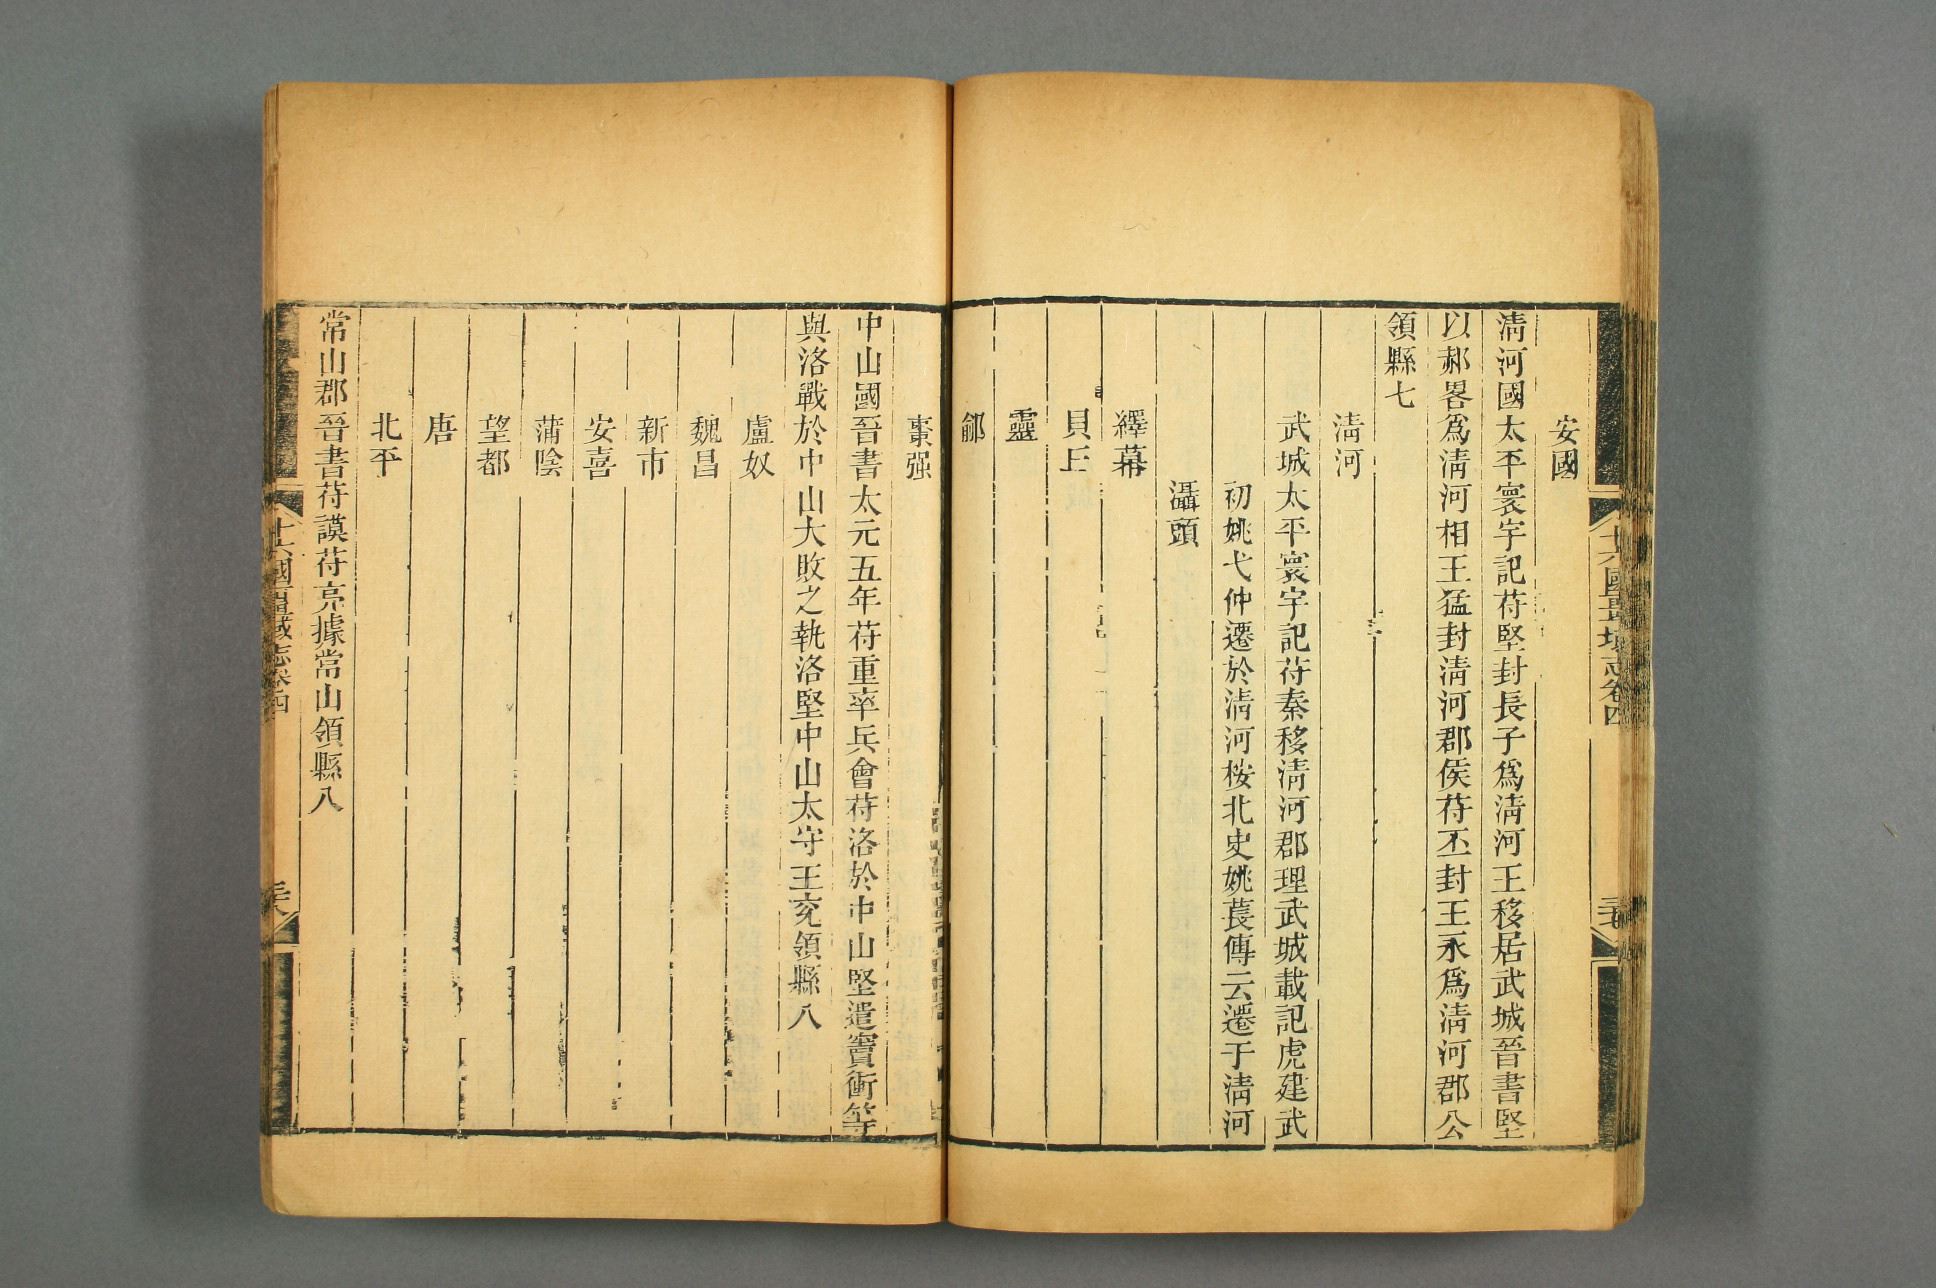 安國
淸河國太平寰宇記苻堅封長子爲淸河王移居武城晉書堅
以郝畧爲淸河相王猛封淸河郡侯苻丕封王永爲淸河郡公
領縣七
淸河
武城太平寰宇記苻秦移淸河郡理武城載記虎建武
初姚弋仲遷於淸河桉北史姚萇傳云遷于淸河
灄頭
繹幕
貝丘
靈
鄃
十六國畺域志卷四
三七
棗强
中山國晉書太元五年苻重率兵會苻洛於中山堅遣竇衝等
與洛戰於中山大敗之執洛堅中山太守王兖領縣八
盧奴
魏昌
新市
安喜
蒲陰
望都
唐
北平
常山郡晉書苻謨苻亮據常山領縣八
十六國畺域志卷四
三八